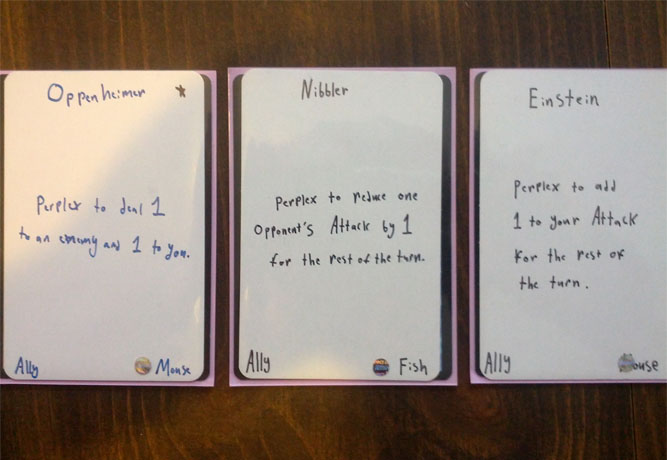 Oppenheimer *
Perplex to deal 1
to an enemy and 1 to you.
Ally Mouse
Nibbler
Perplex to reduce one
Opponent's Attack by 1
for the rest of the turn.
Ally Fish
Einstein
Perplex to add
1 to your Attack
for the rest of
the turn.
Ally Mouse